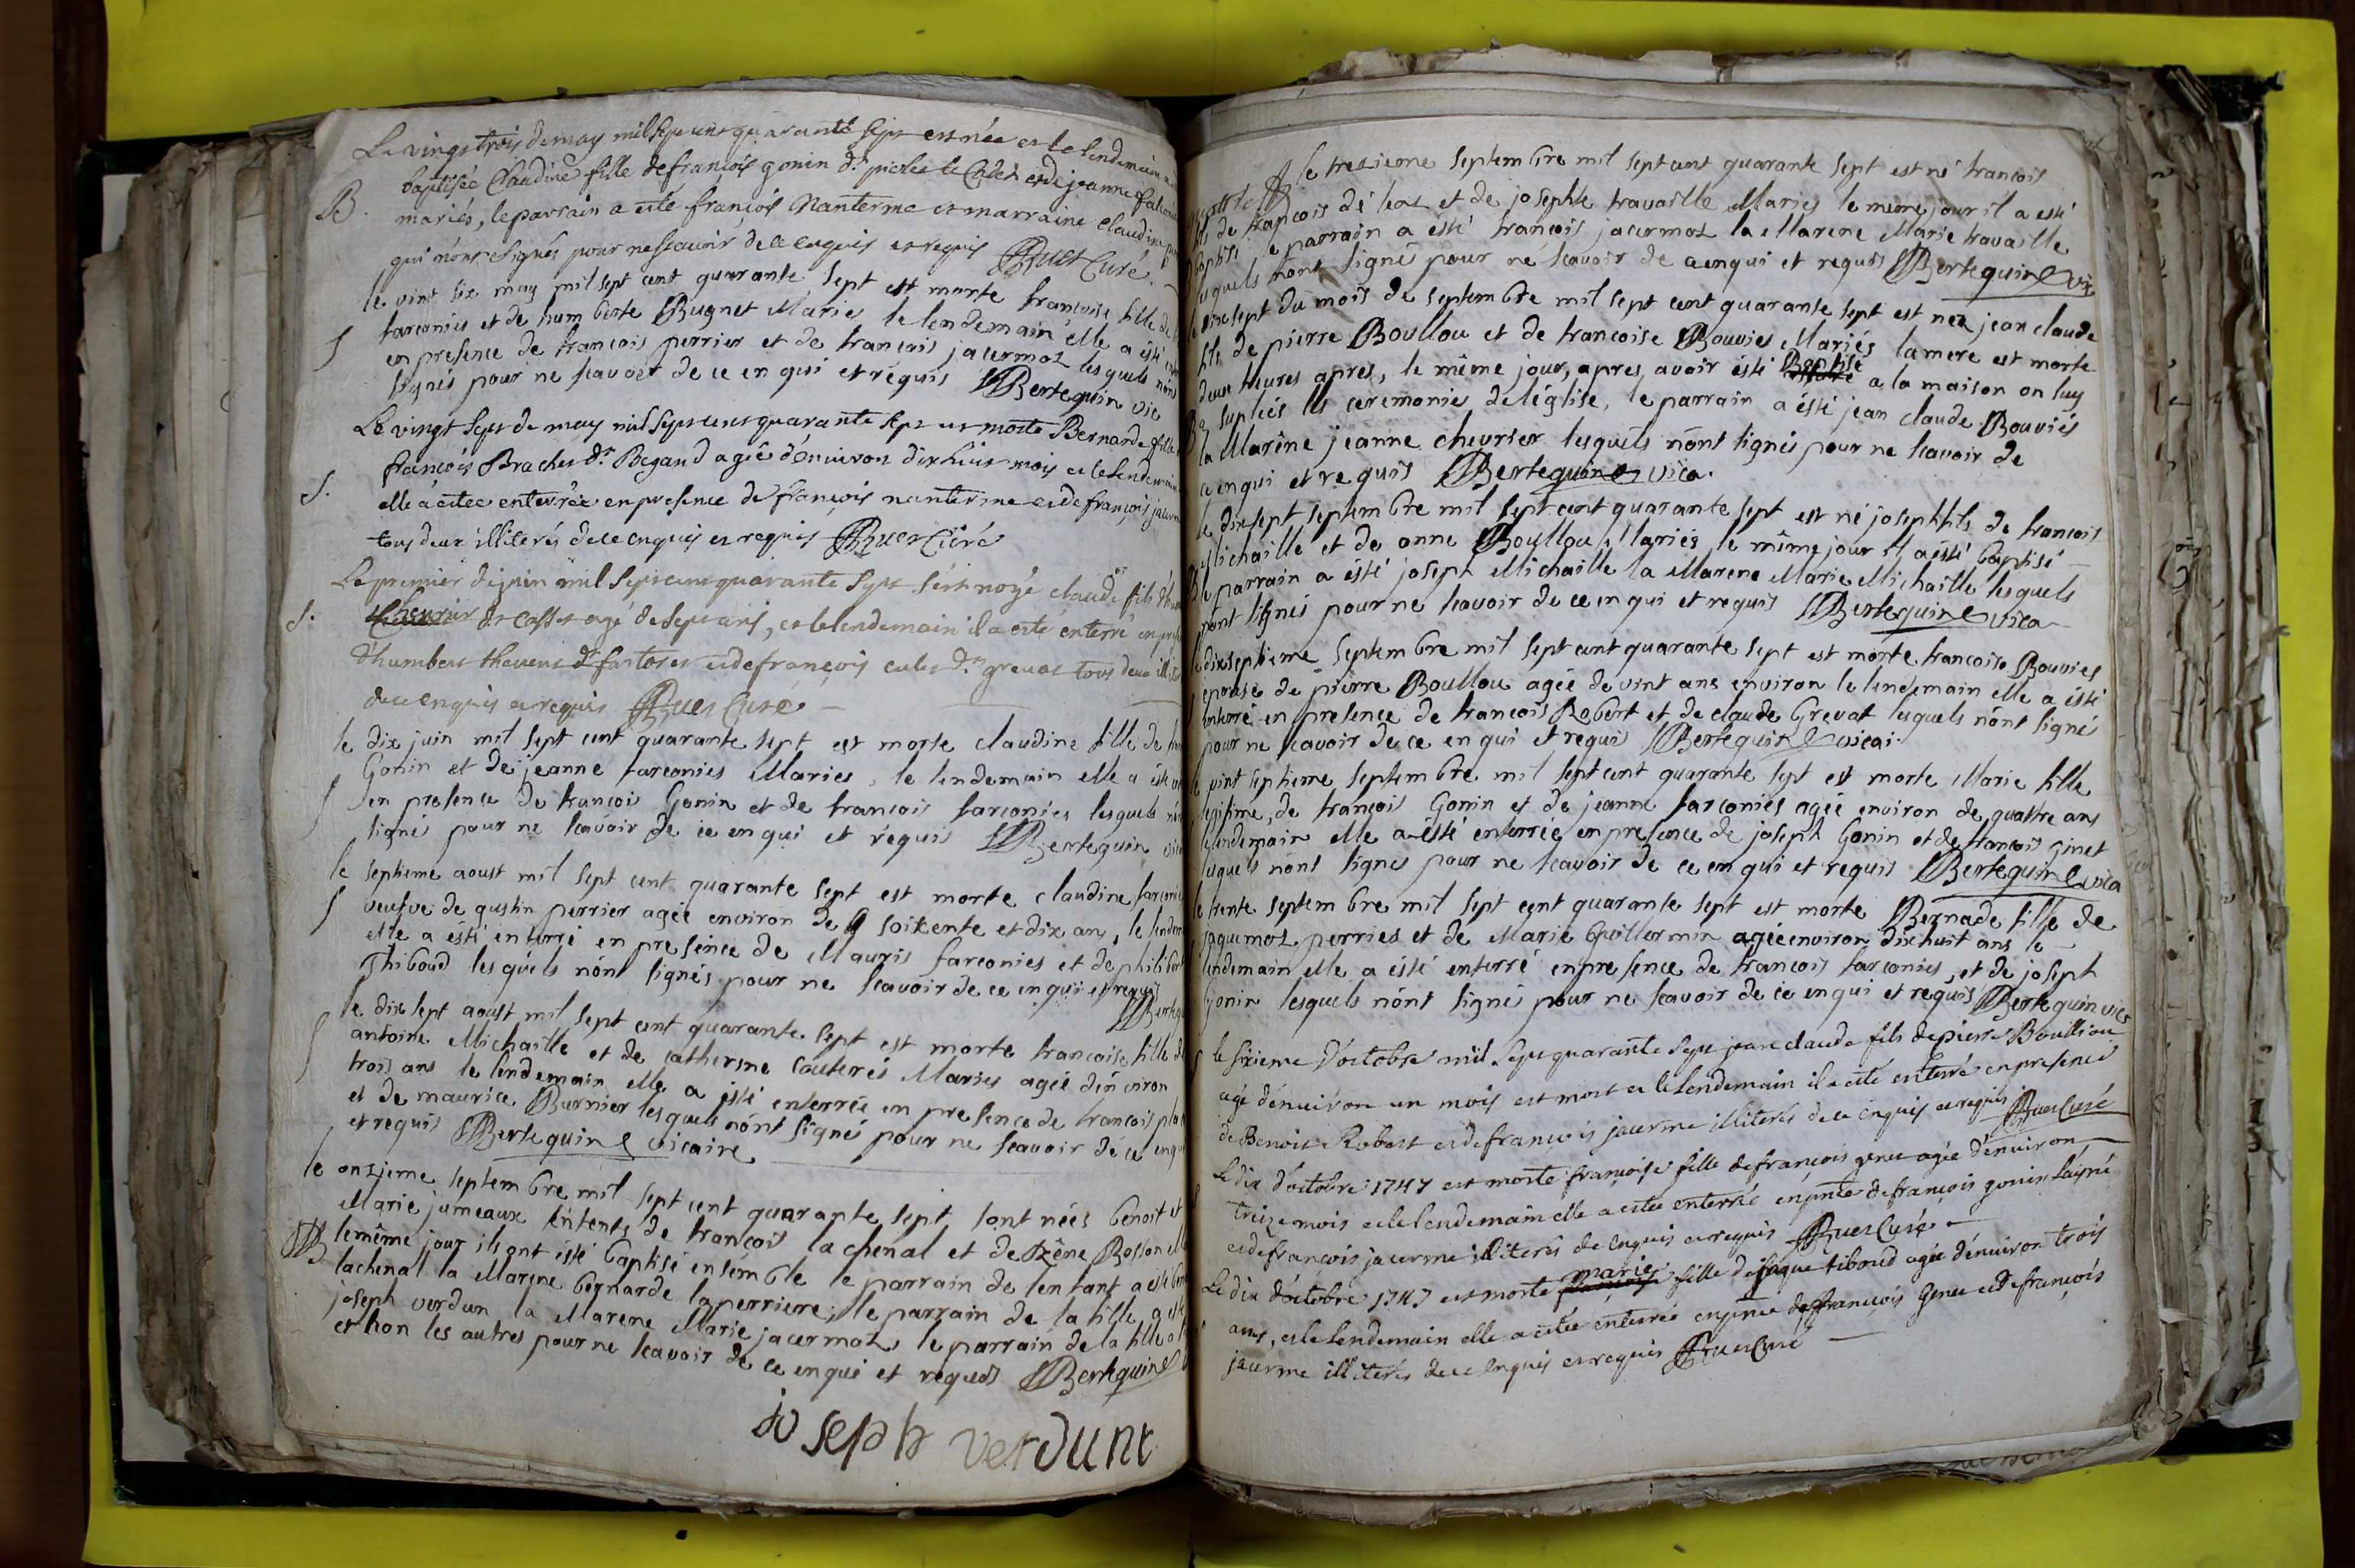 Le vingt trois de may mil sept cent quarante sept est née et le lendemain a
baptisée Claudine fille de francois gonin dt pichet le Cadet et de jeanne
B. mariés, le parrain a esté francois Nanterme et marraine claudine
qui n'ont signés pour ne scavoir de ce enquis et requis Ruet Curé.
le vint six may mil sept cent quarante sept est morte francoise fille de
farconies et de humberte Bugnet Maries le lendemain elle a ésté
S en presence de francois perrier et de francois jacermoz lesquels nont
signés pour ne scavoir de ce en qui et requis Bertequin vic
Le vingt sept de may mil sept cent quarante sept est morte Bernarde fille
francois Brachet dt Begand agée d'environ dix huit mois et le lendemain
S. elle a estee enterrée en presence de francois nanterme et de francois
tous deux illiterés de ce enquis et requis Ruet Curé
Le premier de juin mil sept cent quarante sept s'est noyé claude fils
S. Chevrier dt Casset agé de sept ans, et le lendemain il a esté enterré en
d'humbert thevent dt fastoset et de francois culet dt grevat tous deux
de ce enquis et requis Ruet Curé
le dix juin mil sept cent quarante sept est morte claudine fille de
Gonin et de jeanne farconies Maries, le lendemain elle a ésté
S en presence de francois Gonin et de francois farconies lesquels
signé pour ne scavoir de ce en qui et requis Bertequin
le septieme aoust mil sept cent quarante sept est morte claudine
S veufve de gustin perrier agée environ de soixente et dix ans, le
elle a ésté enterré en presence de Mauris farconies et de philibert
Thiboud lesquels nont signés pour ne scavoir de ce en qui et requis
le dix sept aoust mil sept cent quarante sept est morte francoise fille de
S antoine Michaille et de catherine Cauterés Maries agée d'environ
trois ans le lendemain elle a ésté enterrée en presence de francois
et de maurice Burnier lesquels nont signé pour ne scavoir de ce
et requis Bertequin vicaire
le onzieme septembre mil sept cent quarante sept sont nées benoit et
Marie jumeaux enfents de francois la chenal et de Bosson
B le même jour ils ont ésté baptisé ensemble le parrain de l'enfant a ésté
lachenal la Marene bernarde laperriere; le parrain de la fille a
joseph verdun la Marene Marie jacermoz le parrain de la fille
et non les autres pour ne scavoir de ce en qui et requis Bertequin
joseph verdunt
B le treizieme septembre mil sept cent quarante sept est né francois
fils de francois de leaz et de josephte travaille Maries le même jour il a esté
baptisé le parrain a ésté francois jacermoz la Marene Marie travaille
lesquels nont signé pour ne scavoir de ce en qui et requis Bertequin
le dix sept du mois de septembre mil sept cent quarante sept est nez jean claude
fils de pierre Boullou et de francoise Bouvier Mariés la mere est morte
deux heures apres, le même jour, apres avoir ésté Baptisé a la maison on luy
a suplées les ceremonies de léglise, le parrain a ésté jean claude Bouviés
la Marine jeanne chevrier lesquels n'ont signés pour ne scavoir de
ce en qui et requis Bertequin vica.
le dixsept septembre mil sept cent quarante sept est né joseph fils de francois
Michaille et de anne Boullou Mariés le même jour il a ésté baptisé
B le parrain a ésté joseph Michaille la Marene Marie Michaille lesquels
nont signés pour ne scavoir de ce en qui et requis Bertequin vica
le dixseptieme septembre mil sept cent quarante sept est morte francoise Bouvies
epouse de pierre Boullou agée de vint ans environ le lendemain elle a ésté
enterré en presence de francois Robert et de claude Grevat lesquels n'ont signé
pour ne scavoir de ce en qui et requis Bertequin vicai.
le vint septieme septembre mil sept cent quarante sept est morte Marie fille
legitime, de francois Gonin et de jeanne farconies agée environ de quattre ans
le lendemain elle a ésté enterrée en presence de joseph Gonin et de francois Ginet
lesquels nont signes pour ne scavoir de ce en qui et requis Bertequin vica
le trente septembre mil sept cent quarante sept est morte Bernade fille de
jaquemoz perries et de Marie Guillermin agée environ dix huit ans le
lendemain elle a ésté enterré en presence de francois farconies, et de joseph
Gonin lesquels n'ont signé pour ne scavoir de ce en qui et requis Bertequin vica
le sixieme d'octobre mil sept quarante sept jean claude fils de pierre Boulliou
agé d'environ un mois est mort et le lendemain il a esté enterré en presence
de Benoit Robert et de francois jacerme illiterés de ce enquis et requis Ruet Curé
Le dix d'octobre 1747 est morte francoise fille de francois genet agée d'environ
treize mois et le lendemain elle a estée enterrée en pnce de francois gonin l'aisné
et de francois jacerme illiterés de enquis et requis Ruet Curé
Le dix d'octobre 1747 est morte marie fille de jaque tiboud agée d'environ trois
ans, et le lendemain elle a estée enterrée en pnce de francois Genet et de francois
jacerme illiterés de ce enquis et requis Ruet Curé